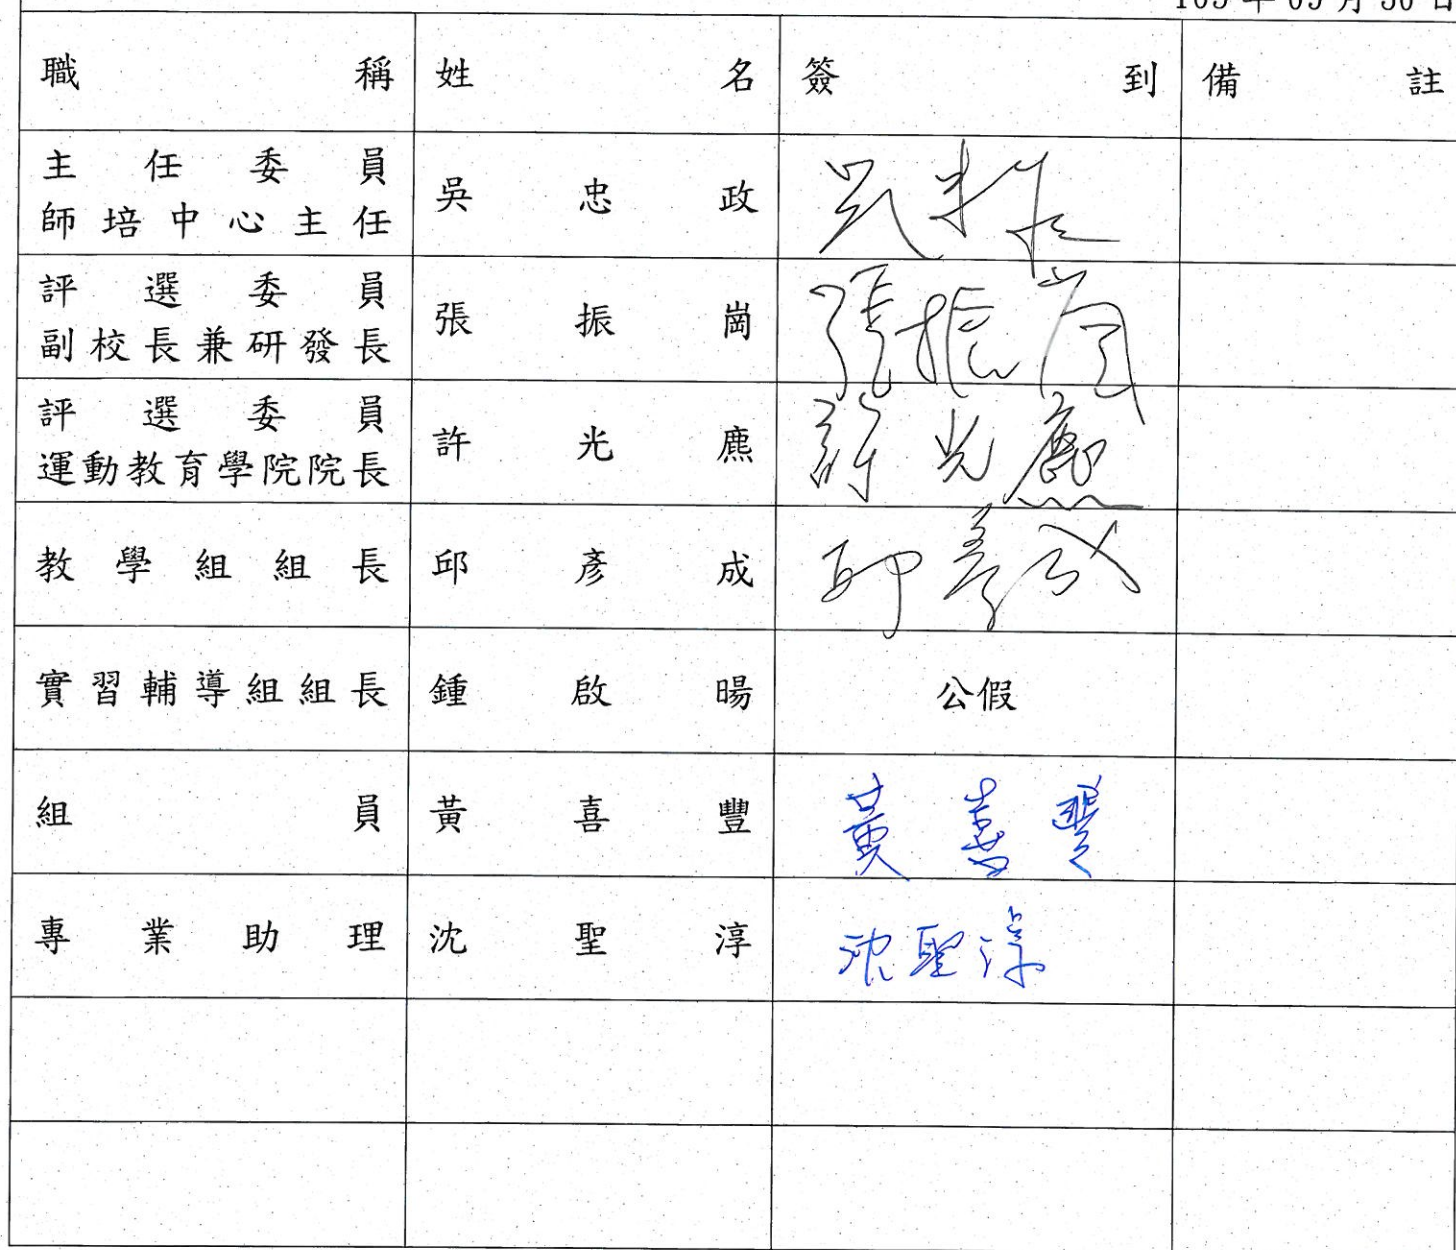 職稱 姓名 簽到 備註
主任委員
師培中心主任 吳忠政
評選委員
副校長兼研發長 張振崗 張振崗
評選委員
運動教育學院院長 許光麃 許光麃
教學組組長 邱彥成 邱彥成
實習輔導組組長 鍾啟暘 公假
組員 黃喜豐 黃喜豐
專業助理 沈聖淳 沈聖淳